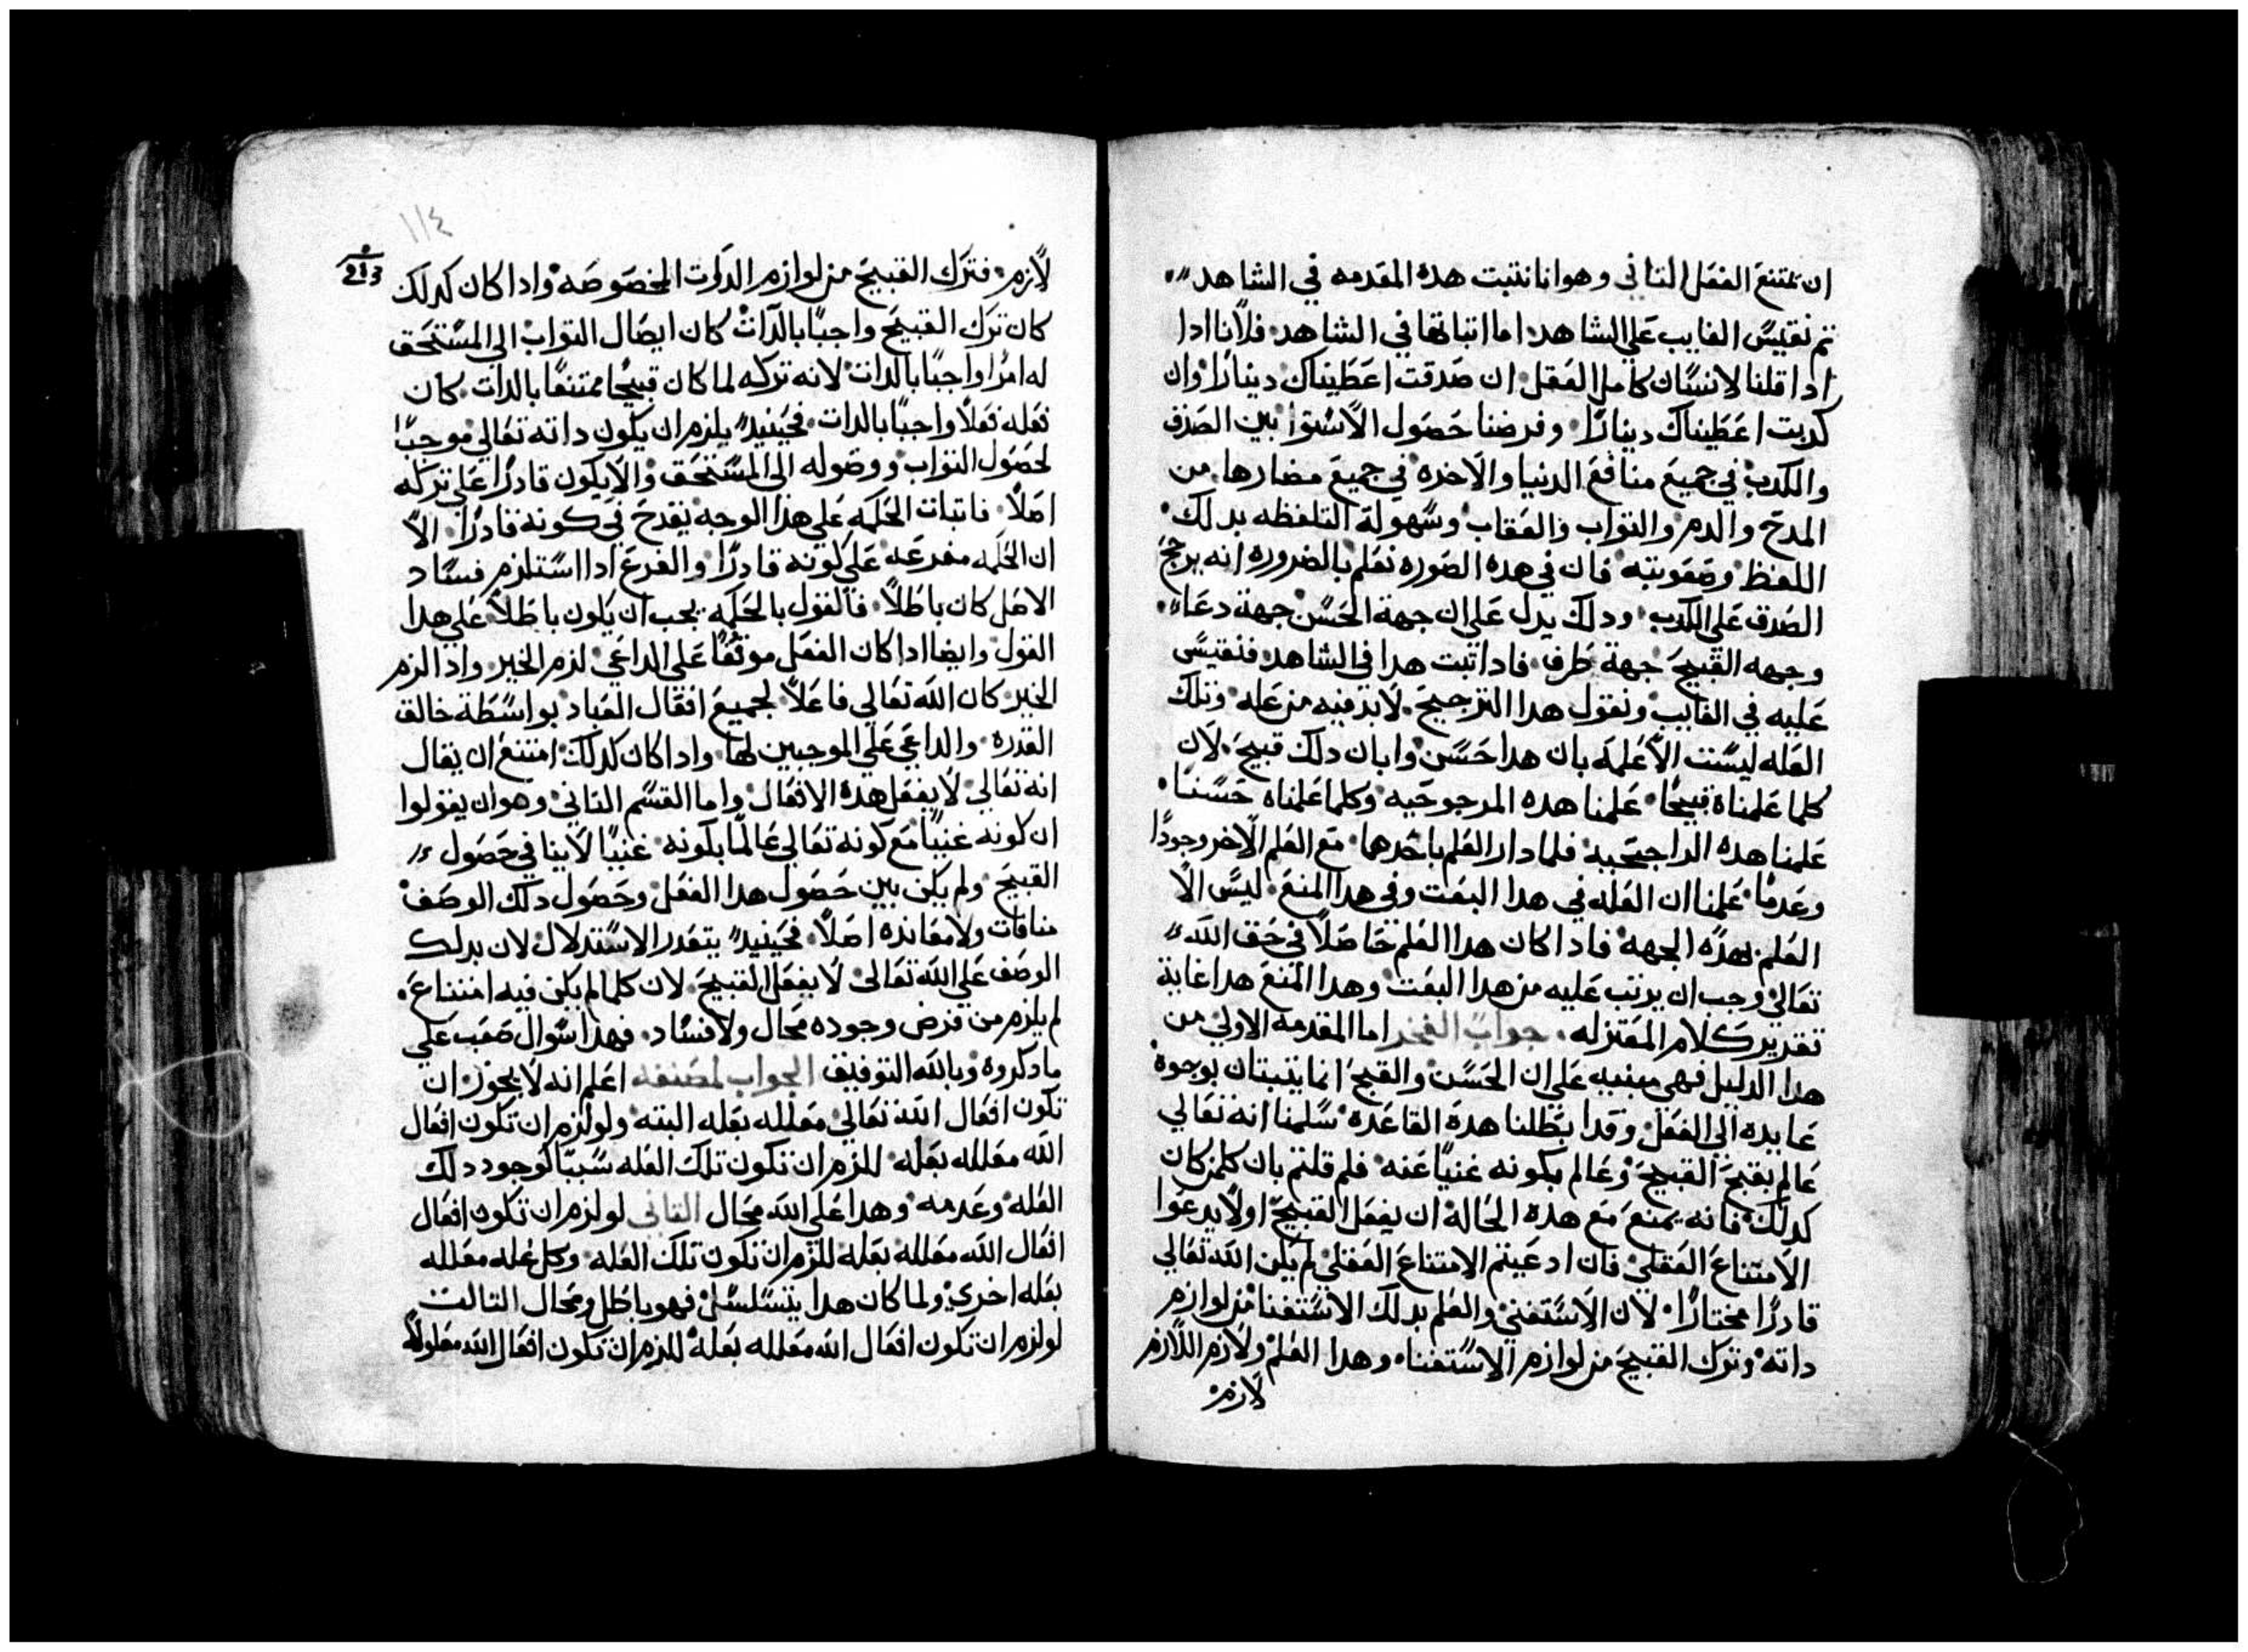 ان تمتنع الفعل التاني وهو انا نتبت هده المقدمه في الشاهد
تم نقيس الغايب على الشاهد اما اتباتها في الشاهد فلاناادا
ادا قلنا لانسان كامل العقل ان صدقت اعطيناك دينارًا وان
كدبت اعطيناك دينارًا وفرضنا حصول الاستوا بين الصدق
والكدب في جميع منافع الدنيا والاخره في جميع مضارها من
المدح والدم والتواب والعقاب وسهولة التلفظه بدلك
اللفظ وصعوبته فان في هده الصوره نعلم بالضروره انه يرجح
الصدق على الكدب ودلك يدل على ان جهة الحسن جهة دعا
وجهه القبيح جهة طرف فادا تبت هدا في الشاهد فنقيس
عليه في الغايب ونقول هدا الترجيح لابد فيه من عله وتلك
العله ليست الا علمه بان هدا حسن وابان دلك قبيح لان
كلما علمناه قبيحًا علمنا هده المرجوحيه وكلما علمناه حسنا
علمنا هده الراجحيه فلما دار العلم باحدهما مع العلم الاخر وجودًا
وعدمًا علمنا ان العله في هدا البعت وفي هدا المنع ليس الا
العلم بهده الجهه فادا كان هدا العلم حاصلاً في حق الله
تعالى وجب ان يرتب عليه من هدا البعت وهدا المنع هدا غاية
تقدير كلام المعتزله جواب الفخر اما المقدمه الاولي من
هدا الدليل فهى مبنيه على ان الحسن والقبح انما يتبتان بوجوه
عايده الى الفعل وقد ابطلنا هده القاعده سلمنا انه تعالي
عالم بقبح القبيح وعالم بكونه غنيًا عنه فلم قلتم بان كلمن كان
كدلك فانه يمنع مع هده الحاله ان يفعل القبيح اولا يدعوا
الامتناع العقلي فان ادعيتم الامتناع العقلي لم يكن الله تعالي
قادرًا مختارًا لان الاستغني والعلم بدلك الاستغنا من لوازم
داته وترك القبيح من لوازم الاستغنا وهدا العلم ولازم اللازم
لازم
١١٤
213
لازم فترك القبيح من لوازم الدوات المخصوصه وادا كان كدلك
كان ترك القبيح واجبًا بالدات كان ايصال التواب الى المستحق
له امرًا واجبًا بالدات لانه تركه لما كان قبيحًا ممتنعًا بالدات كان
فعله فعلاً واجبًا بالدات فحينيد يلزم ان يكون داته تعالي موجبًا
لحصول التواب ووصوله الى المستحق والا يكون قادرًا على تركه
اصلاً فاتبات الحكمه على هدا الوجه يقدح في كونه قادرًا الا
ان الحكمه مفرعه على كونه قادرًا والفرع ادا استلزم فساد
الاصل كان باطلاً فالقول بالحكمه يجب ان يكون باطلاً على هدا
القول وايضا ادا كان الفعل موقفًا على الداعي لزم الخبر وادا لزم
الخبر كان الله تعالي فاعلاً لجميع افعال العباد بواسطة خالق
القدره والداعي علي الموجبين لها وادا كان كدلك امتنع ان يقال
انه تعالي لا يفعل هده الافعال واما القسم التاني وهو ان يقولوا
ان كونه غنيًا مع كونه تعالي عالمًا بكونه غنيًا لا ينافي حصول
القبيح ولم يكن بين حصول هدا الفعل وحصول دلك الوصف
منافات ولا معانده اصلاً فحينيد يتعدر الاستدلال لان بدلك
الوصف على الله تعالى لا يفعل القبيح لان كلما لم يكن فيه امتناع
لم يلزم من فرض وجوده محال ولا فساد فهدا سوال صعب على
ما دكروه وبالله التوفيق الجواب لمصنفه اعلم انه لا يجوز ان
تكون افعال الله تعالي معلله بعله البته ولو لزم ان تكون افعال
الله معلله بعله للزم ان تكون تلك العله سببًا لوجود دلك
العله وعدمه وهدا على الله محال التاني لو لزم ان تكون افعال
افعال الله معلله بعله للزم ان تكون تلك العله وكل عله معلله
بعله اخري ولما كان هدا يتسلسل فهو باطل ومحال التالت
لو لزم ان تكون افعال الله معلله بعله للزم ان تكون افعال الله معلولاً